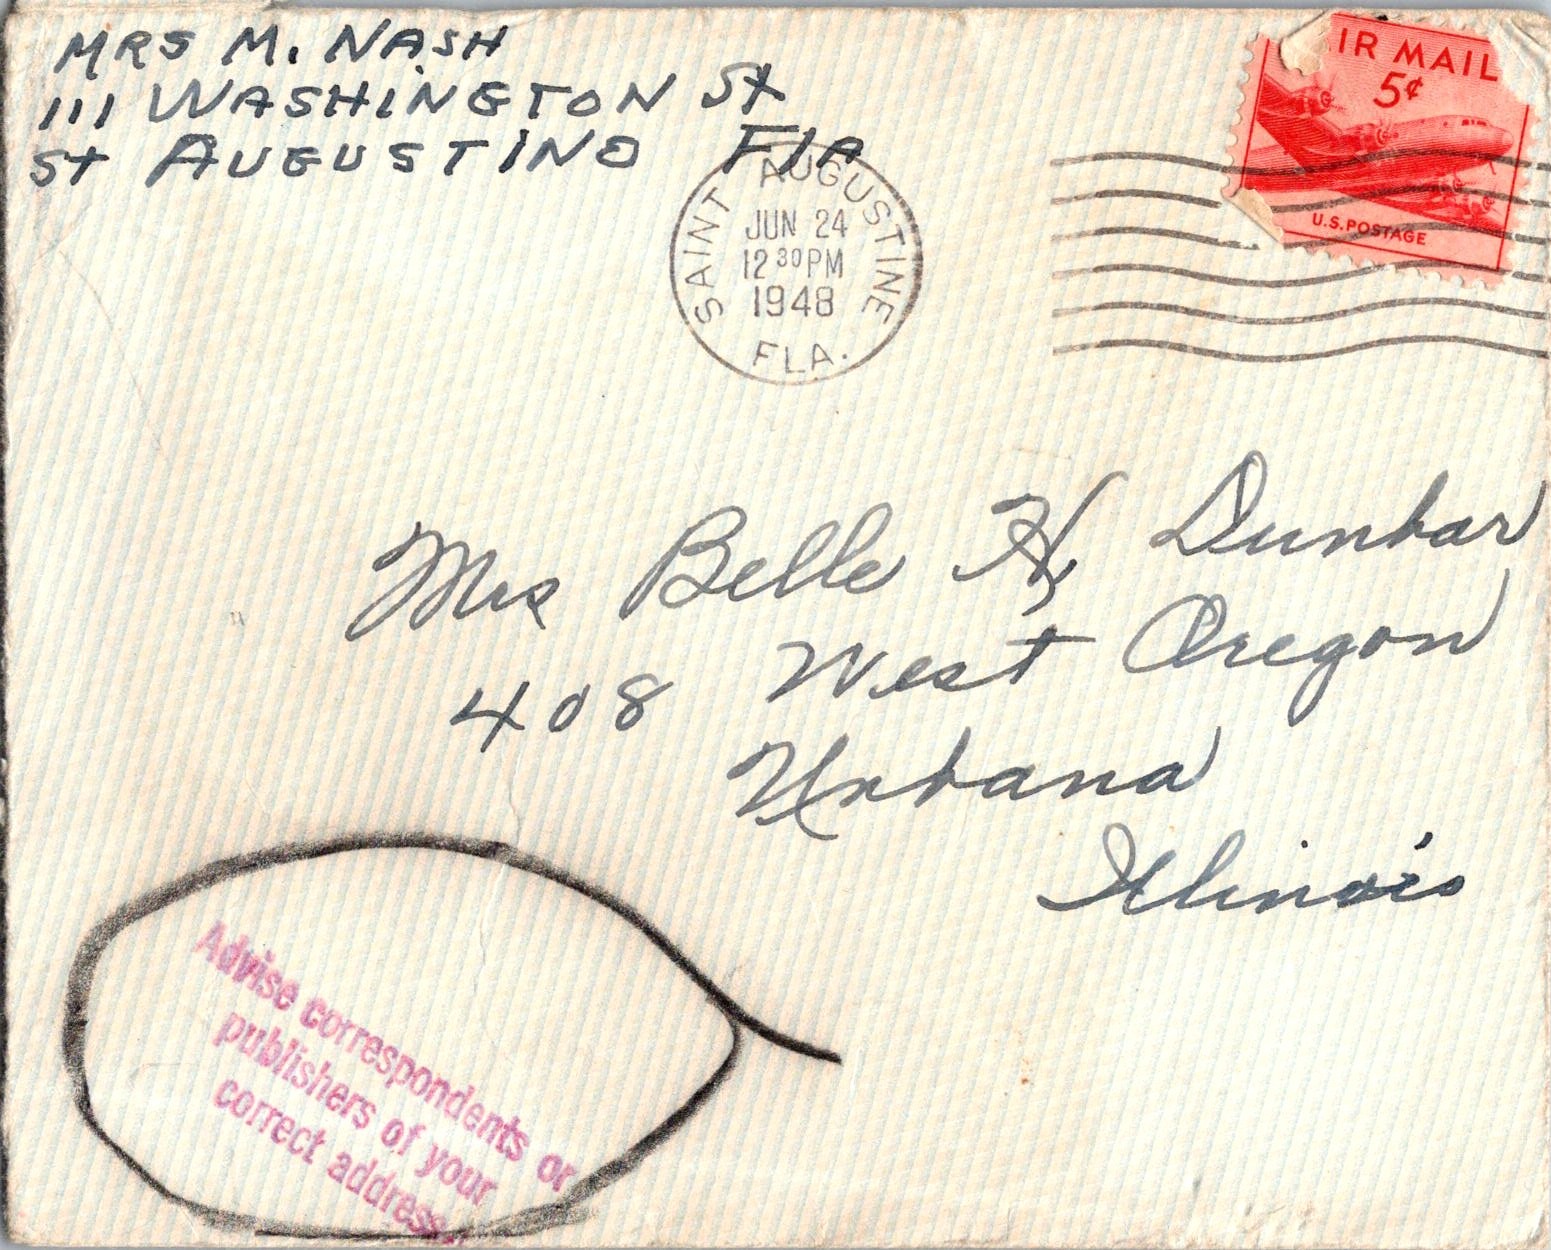 MRS M. NASH
111 WASHINGTON St
St AUGUSTINO Fla
IR MAIL
5¢
U.S. POSTAGE
SAINT AUGUSTINE
JUN 24
12 30 PM
1948
FLA.
Mrs Belle H. Dunbar
408 West Oregon
Urbana
Illinois
Advise correspondents or
publishers of your
correct address.